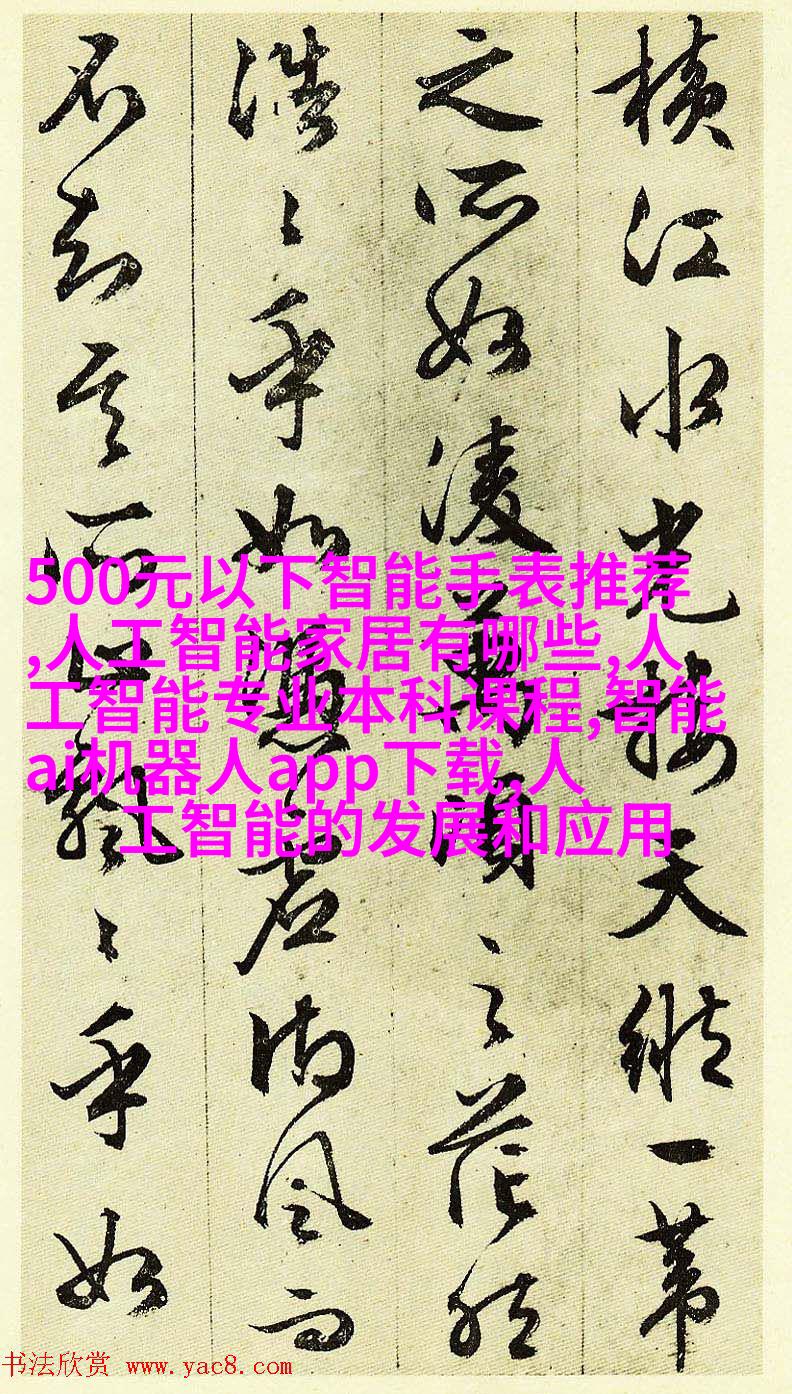 橫江水光接天縱一葦
之所如凌萬頃之茫然
浩々乎如憑虛御風而
不知其所止飄々乎如
500元以下智能手表推荐
,人工智能家居有哪些,人
工智能专业本科课程,智能
ai机器人app下载,人
工智能的发展和应用
书法欣赏 www.yac8.com